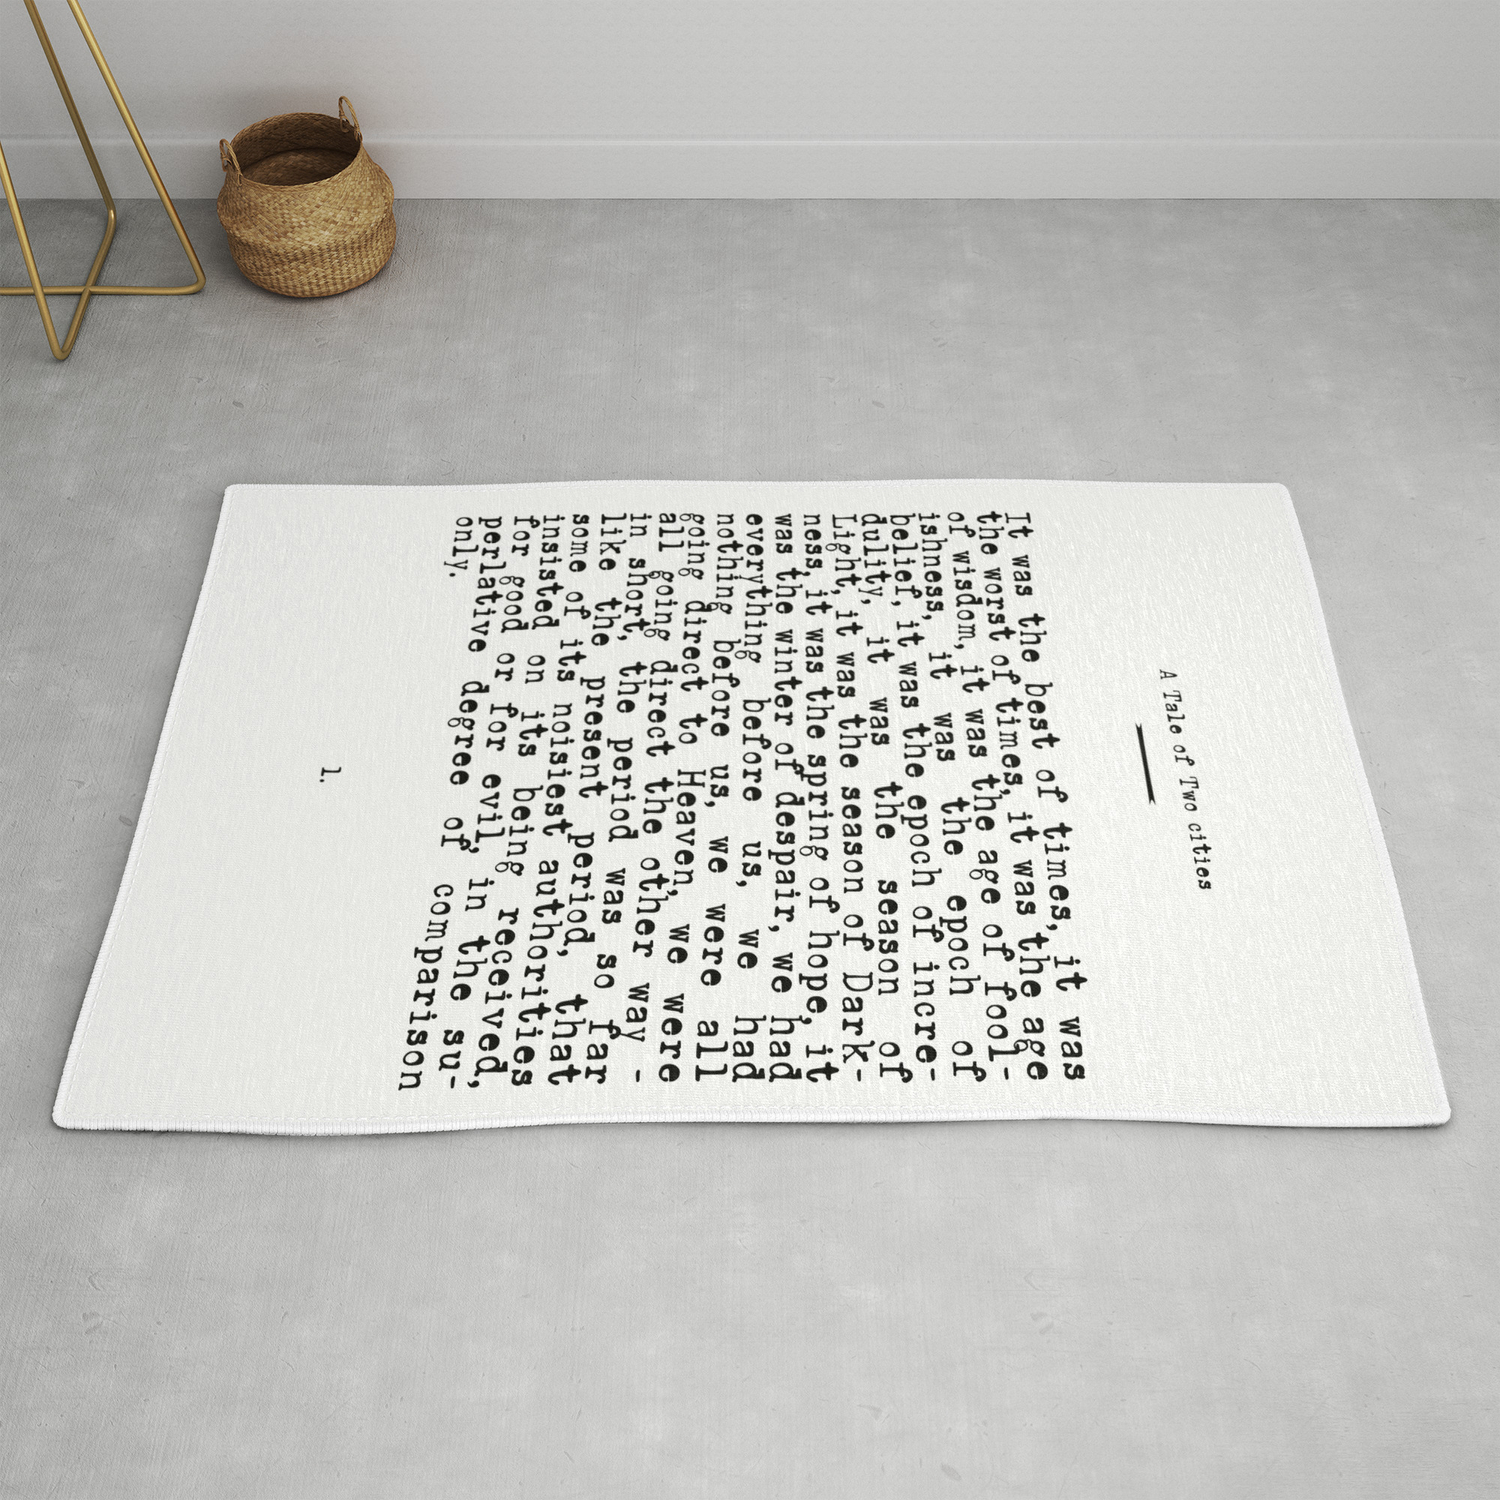 A Tale of Two cities
It was the best of times, it was
the worst of times, it was the age
of wisdom, it was the age of fool-
ishness, it was the epoch of
belief, it was the epoch of incre-
dulity, it was the season of
Light, it was the season of Dark-
ness, it was the spring of hope, it
was the winter of despair, we had
everything before us, we had
nothing before us, we were all
going direct to Heaven, we were
all going direct the other way -
in short, the period was so far
like the present period, that
some of its noisiest authorities
insisted on its being received,
for good or for evil, in the su-
perlative degree of comparison
only.
1.